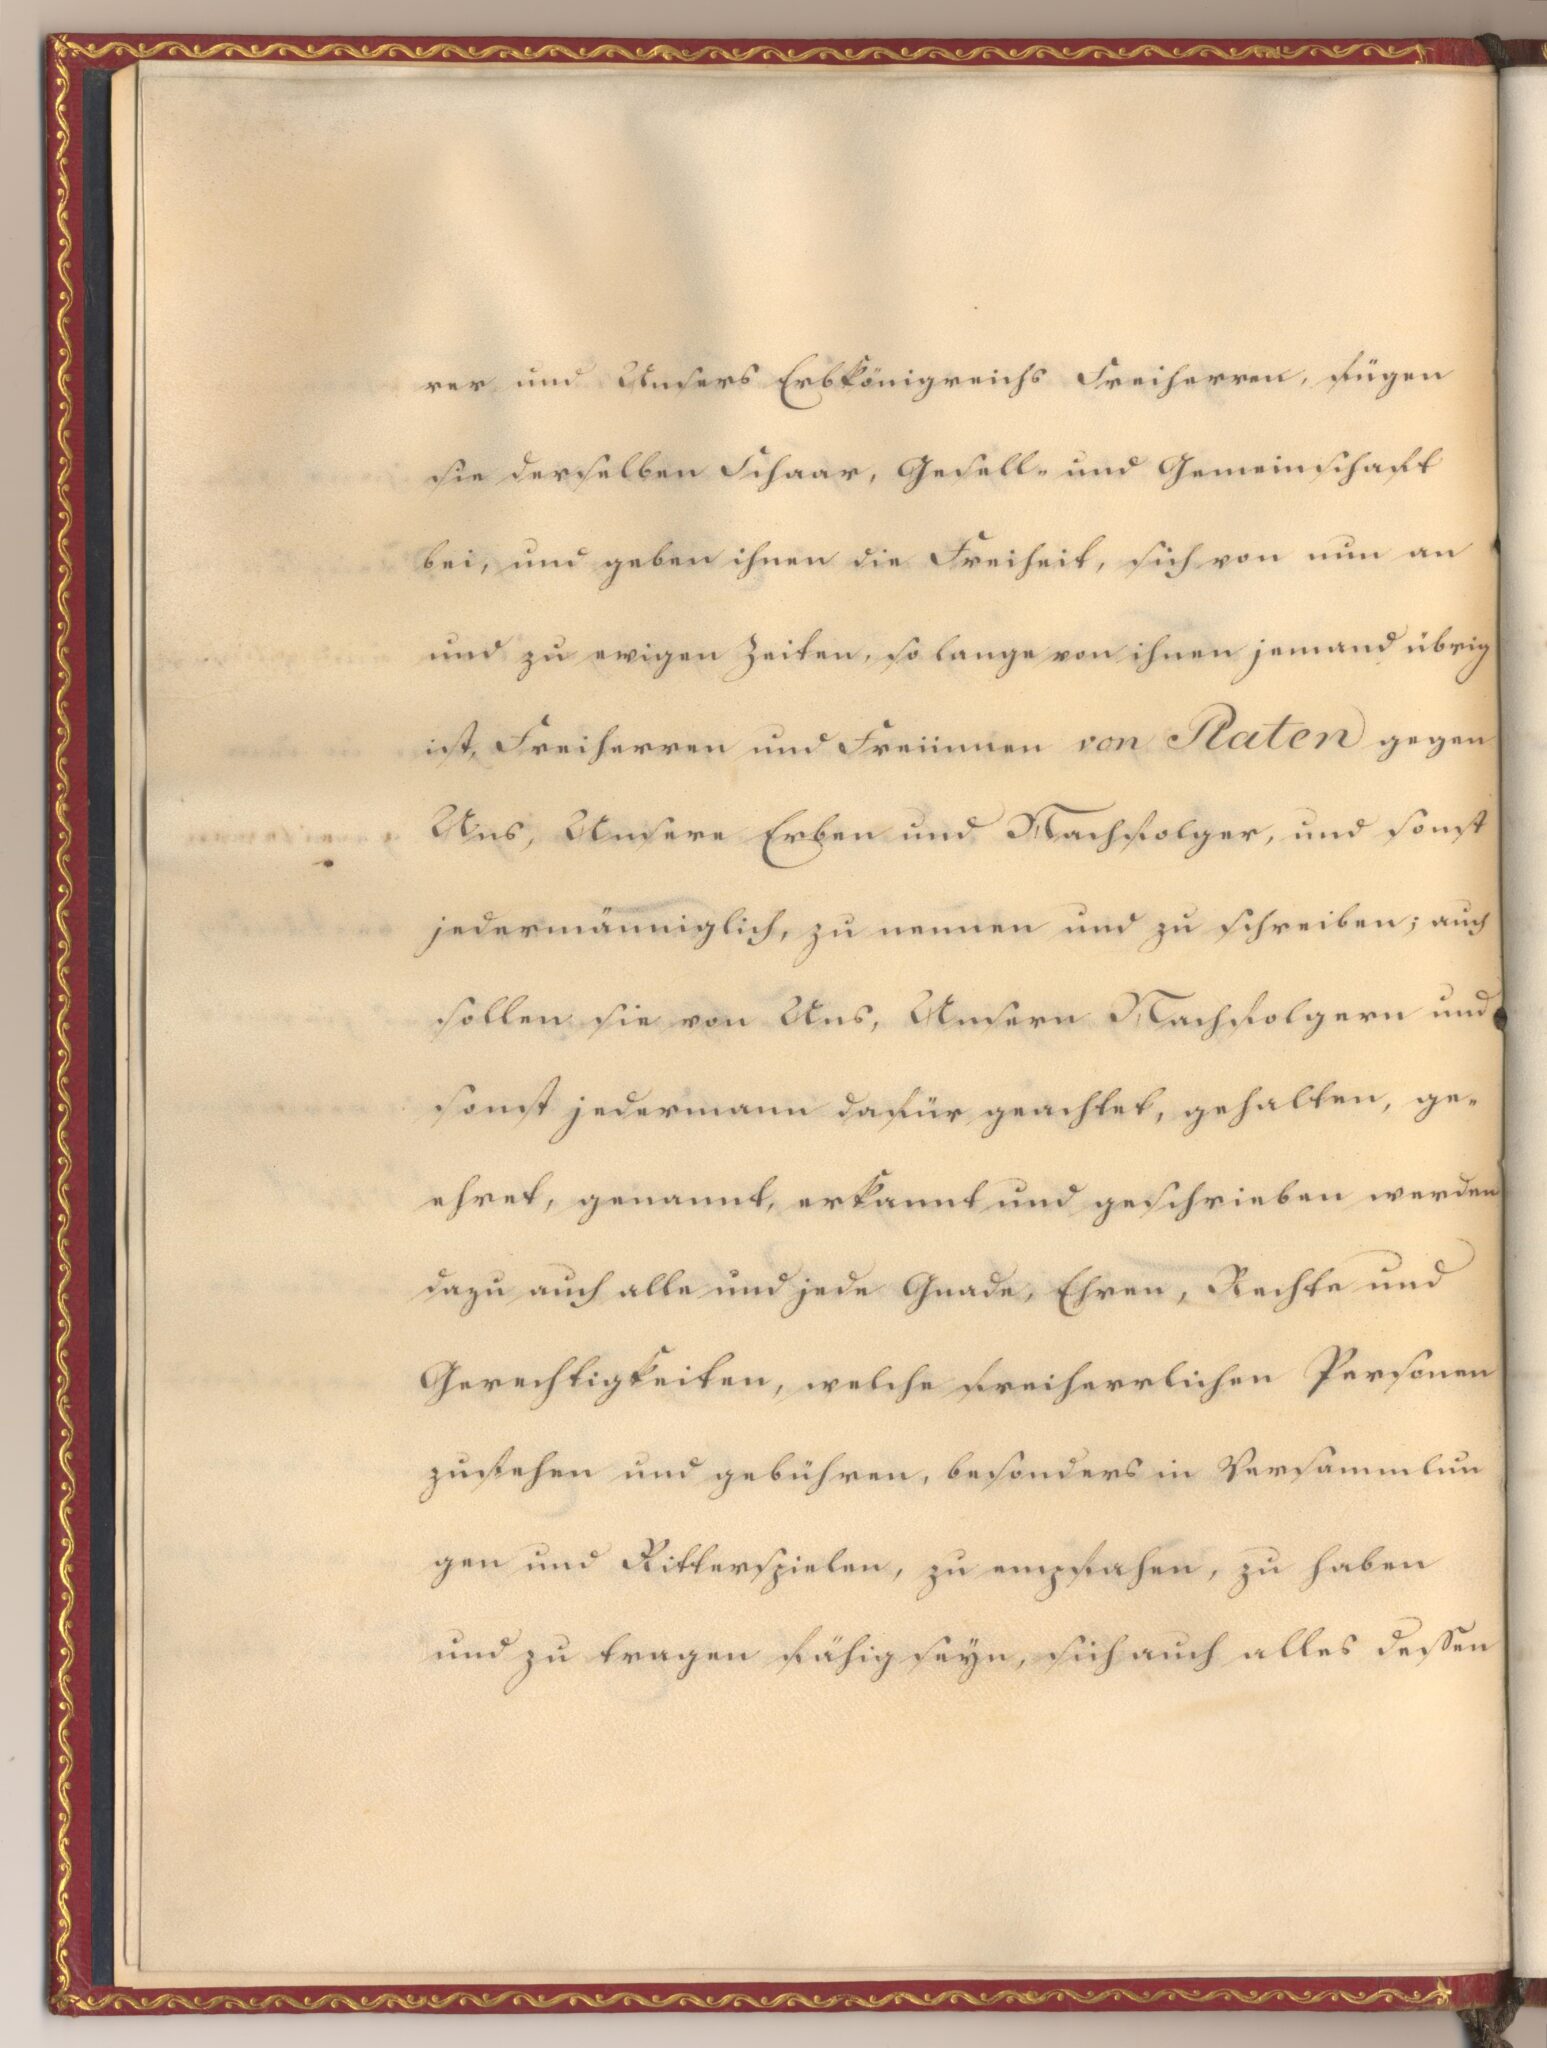 rer und Unsers Erbkönigreichs Freiherren, fügen
sie derselben Schaar, Gesell- und Gemeinschaft
bei, und geben ihnen die Freiheit, sich von nun an
und zu ewigen Zeiten, so lange von ihnen jemand übrig
ist, Freiherren und Freiinnen von Raten gegen
Uns, Unsere Erben und Nachfolger, und sonst
jedermänniglich, zu nennen und zu schreiben; auch
sollen sie von Uns, Unsern Nachfolgern und
sonst jedermann dafür geachtet, gehalten, ge-
ehret, genannt, erkannt und geschrieben werden
dazu auch alle und jede Gnade, Ehren, Rechte und
Gerechtigkeiten, welche freiherrlichen Personen
zustehen und gebühren, besonders in Versammlun
gen und Ritterspielen, zu empfahen, zu haben
und zu tragen fähig seyn, sich auch alles dessen